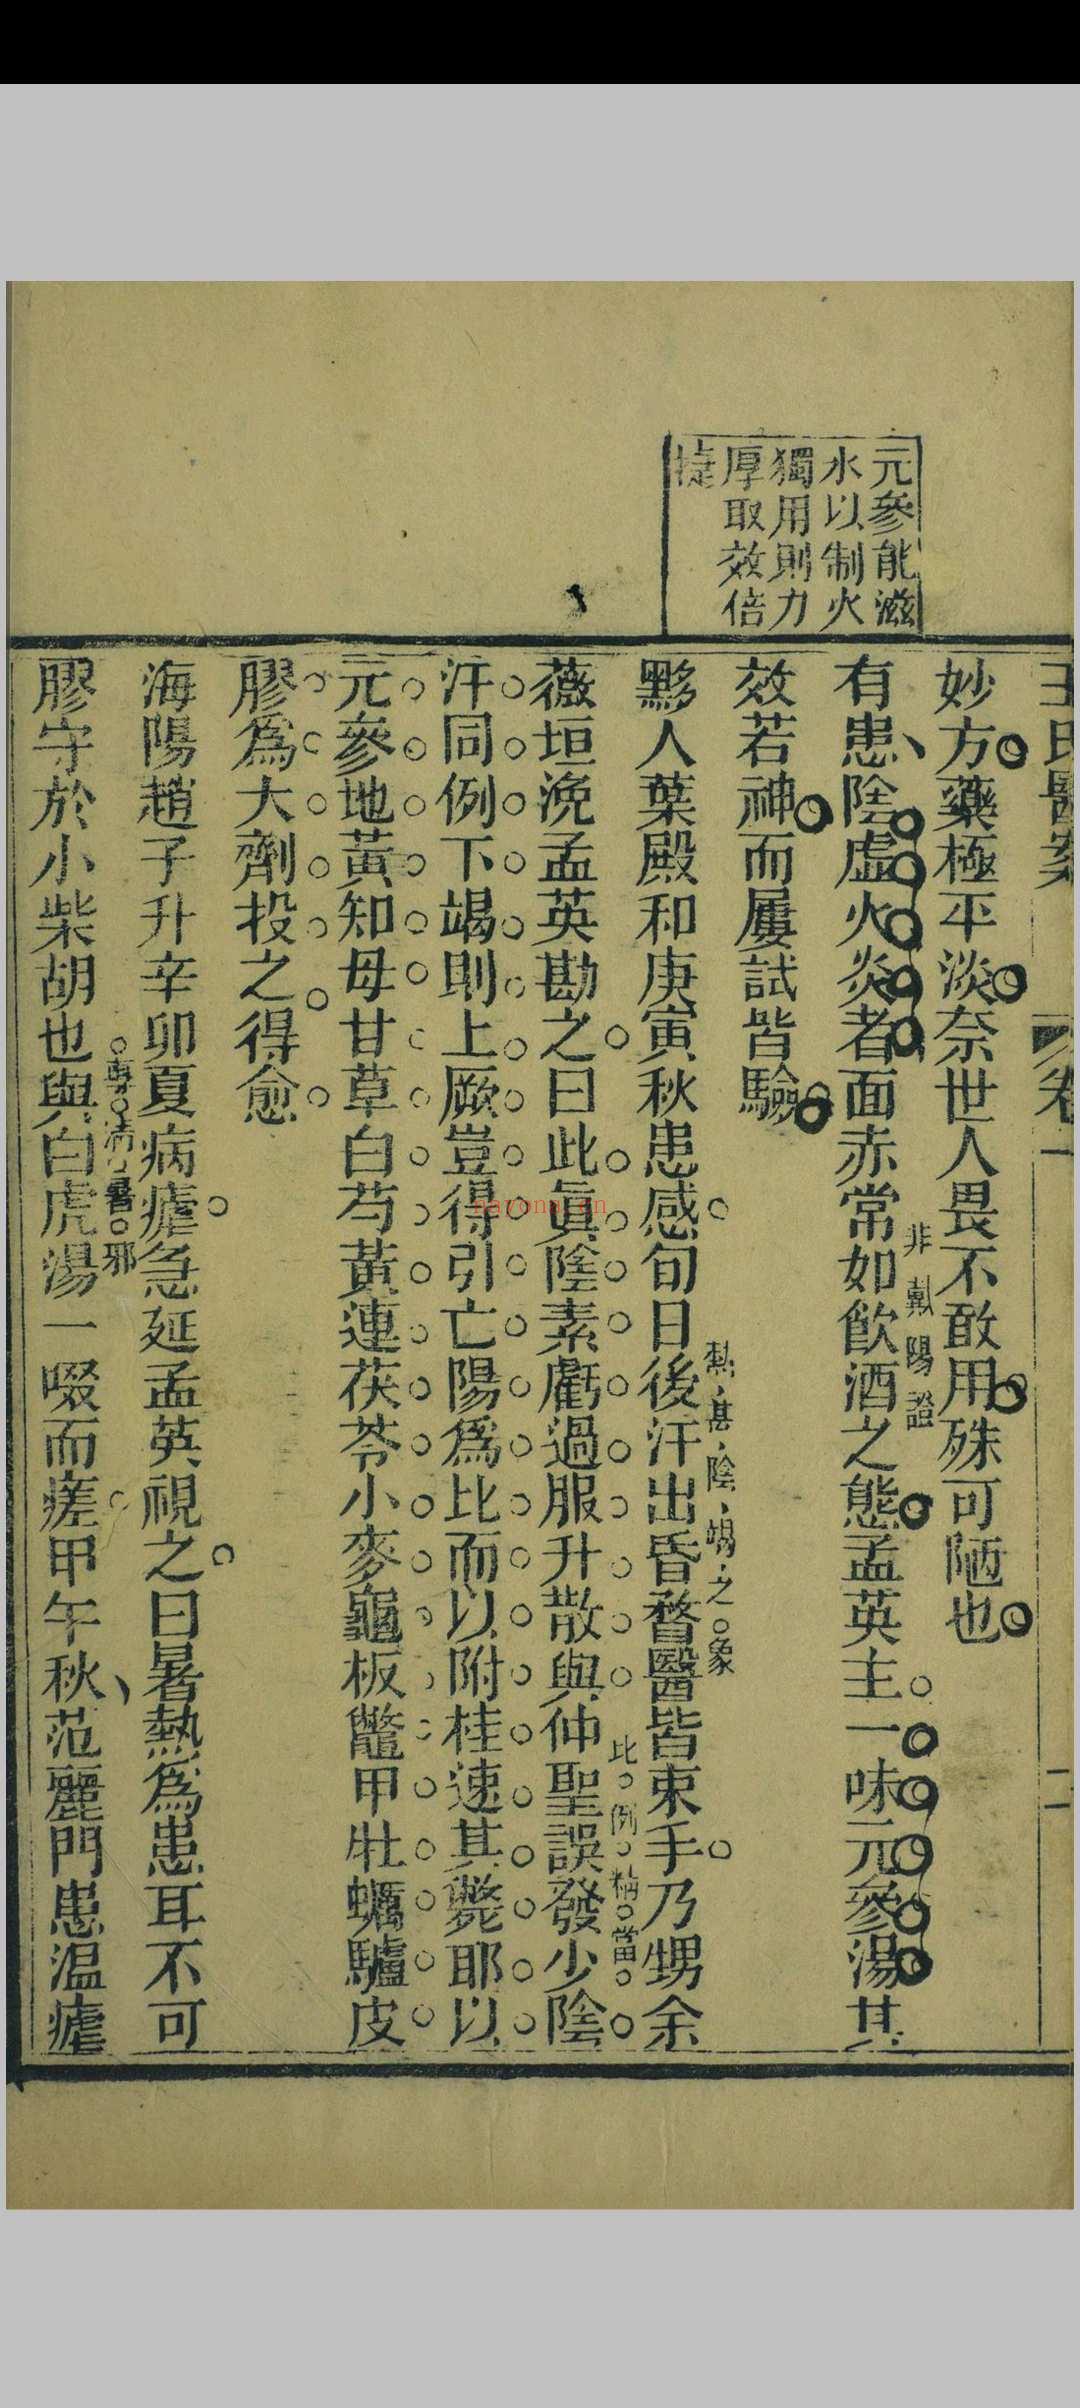 王氏醫案
卷一
二
妙方藥極平淡奈世人畏不敢用殊可陋也
元參能滋
水以制火
獨用則力
厚取效倍
捷
有患陰虛火炎者面赤常如飲酒之態孟英主一味元參湯其
非戴陽證
效若神而屢試皆驗
黟人葉殿和庚寅秋患感旬日後汗出昏瞀醫皆束手乃甥余
熱甚陰竭之象
薇垣浼孟英勘之曰此眞陰素虧過服升散與仲聖誤發少陰
比例精當
汗同例下竭則上厥豈得引亡陽爲比而以附桂速其斃耶以
元參地黃知母甘草白芍黃連茯苓小麥龜板鼈甲牡蠣驢皮
膠爲大劑投之得愈
海陽趙子升辛卯夏病瘧急延孟英視之曰暑熱爲患耳不可
膠守於小柴胡也與白虎湯一啜而瘥甲午秋范麗門患温瘧
專清暑邪
nayona.cn